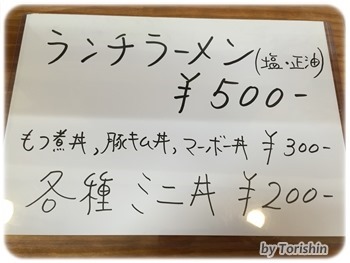 ランチラーメン(塩・正油)
¥500-
もつ煮丼,豚キム丼,マーボー丼 ¥300-
各種 ミニ丼 ¥200-
by Torishin